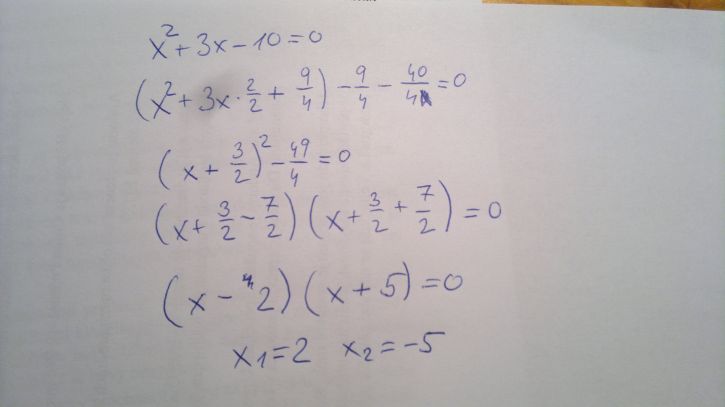 x² + 3x - 10 = 0
(x² + 3x · 2/2 + 9/4) - 9/4 - 40/4 = 0
(x + 3/2)² - 49/4 = 0
(x + 3/2 - 7/2) (x + 3/2 + 7/2) = 0
(x - 2) (x + 5) = 0
x₁ = 2 x₂ = -5